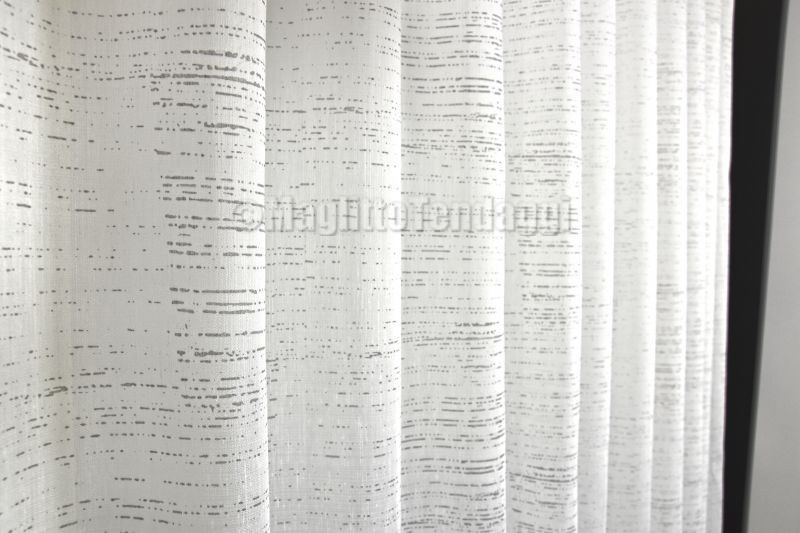 ©MaglittoTendaggi